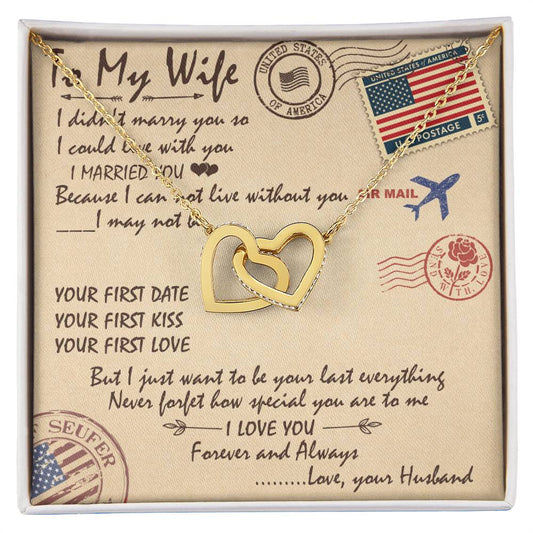 To My Wife
UNITED STATES
OF AMERICA
UNITED STATES OF AMERICA
U.S. POSTAGE 5¢
I didn't marry you so
I could live with you
I MARRIED YOU
Because I can not live without you
AIR MAIL
___I may not be
SEND WITH LOVE
YOUR FIRST DATE
YOUR FIRST KISS
YOUR FIRST LOVE
But I just want to be your last everything
Never forfet how special you are to me
I LOVE YOU
Forever and Always
.........Love, your Husband
SEUFER